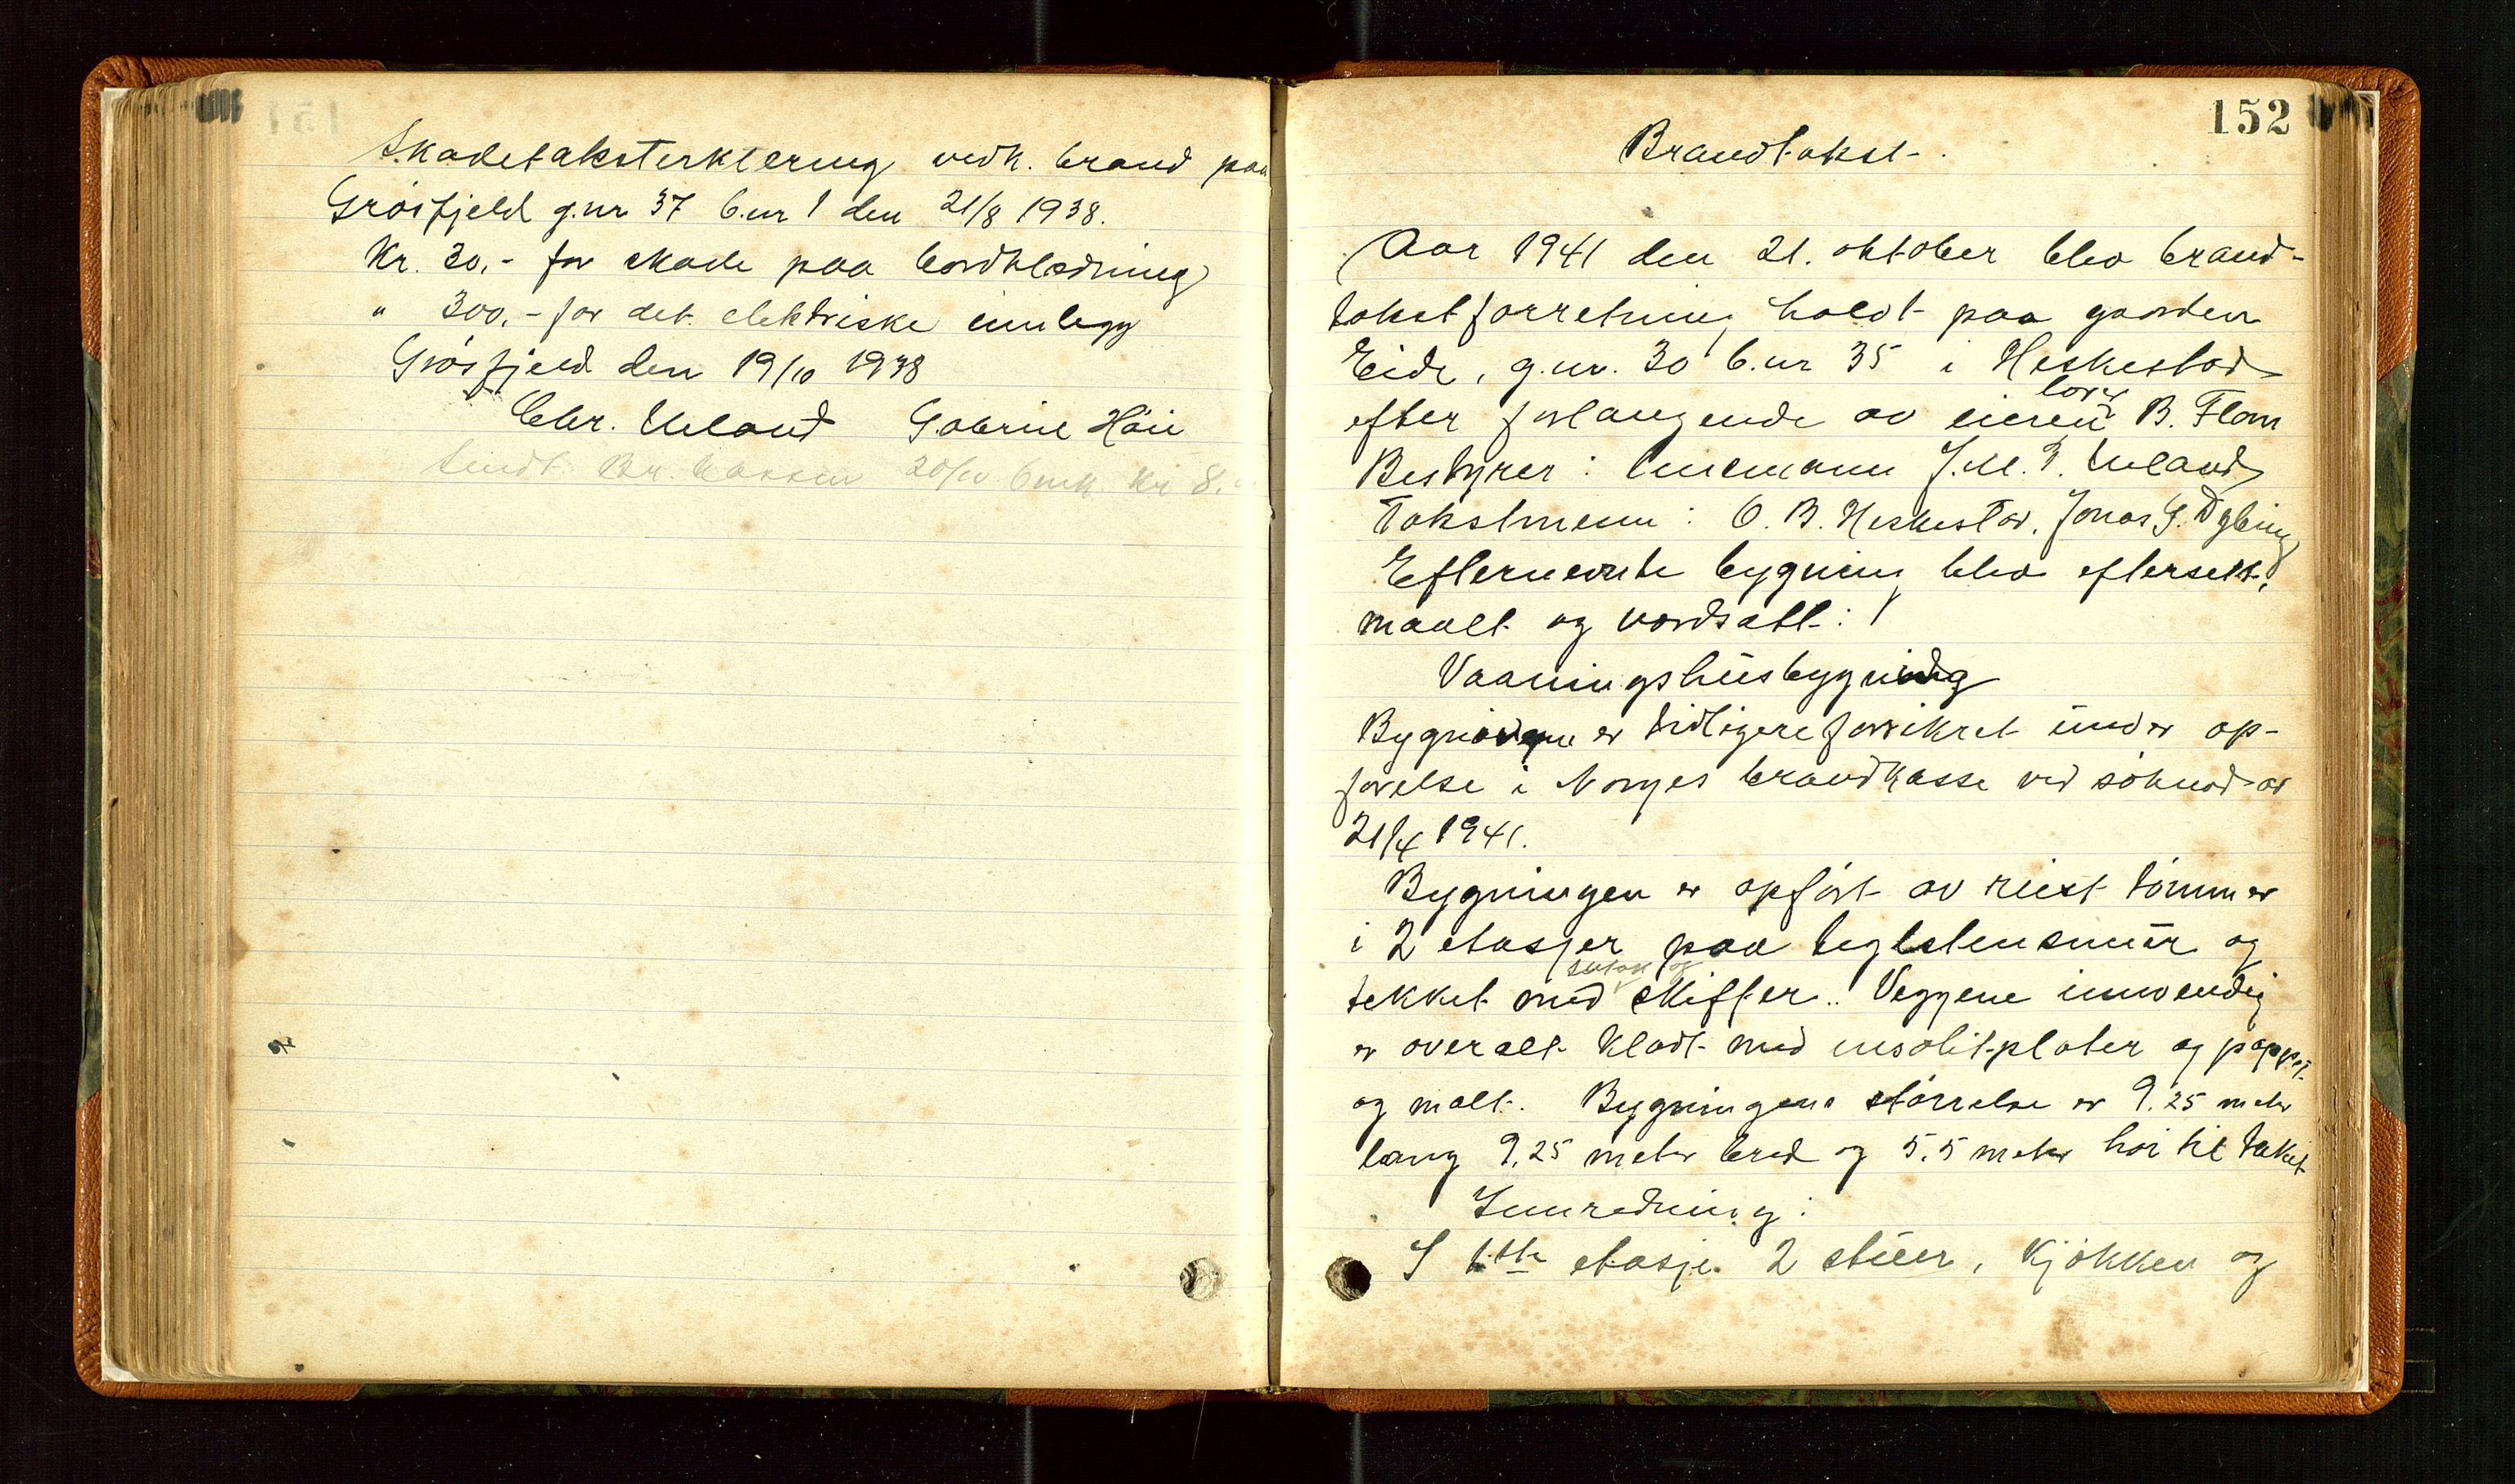 Skadetaksterklering vedk. brand paa
Grøsfjeld g.nr 37 b.nr 1 den 21/8 1938.
Kr. 30.- for skade paa bordklædning
" 300.- for det elektriske innlegg
Grøsfjeld den 19/10 1938
Chr. Ueland Gabriel Höie
Sendt Br. kassen 20/10 Kr 8.
152
Brandtakst.
Aar 1941 den 21. oktober blev brand-
takstforretning holdt paa gaarden
Eide, g.nr. 30 b.nr 35 i Heskestad
efter forlangende av eieren B. Flom
Bestyrer: lensmann J.M. P. Ueland
Takstmenn: O. B. Heskestad, Jonas G. Dybing
Efternevnte bygning blev efterset,
maalt og verdsatt:
Vaaningshusbygning
Bygningene er tidligere forsikret under op-
førelse i Norges brandkasse ved söknad av
21/4 1941.
Bygningen er opført av reist tømmer
i 2 etasjer paa teglstensmur og
sutak og
tekket med skiffer. Veggene innvendig
er overalt klædt med insolitplater og pappet
og malt. Bygningens størrelse er 9.25 meter
lang 9,25 meter bred og 5.5 meter höi til taket
Innredning:
I 1ste etasje 2 stuer, kjøkken og